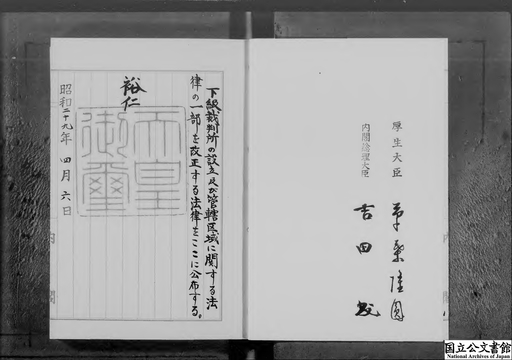 厚生大臣 草葉隆圓
内閣總理大臣 吉田茂
下級裁判所の設立及び管轄区域に関する法
律の一部を改正する法律をここに公布する。
裕仁
天皇
御璽
昭和二十九年四月六日
国立公文書館
National Archives of Japan